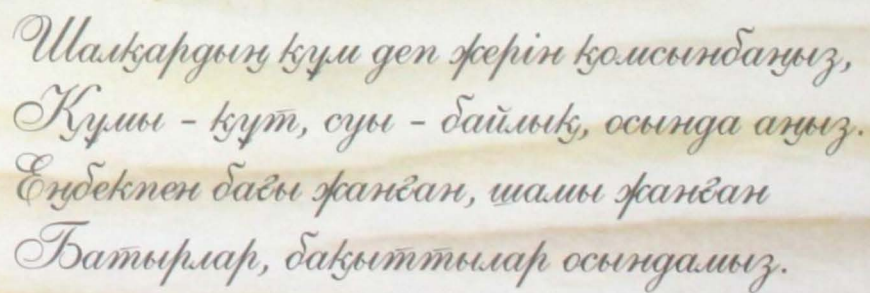 Шалқардың құм деп жерін қомсынбаңыз,
Құмы - құт, суы - байлық, осында аңыз.
Еңбекпен бағы жанған, шамы жанған
Батырлар, бақыттылар осындамыз.